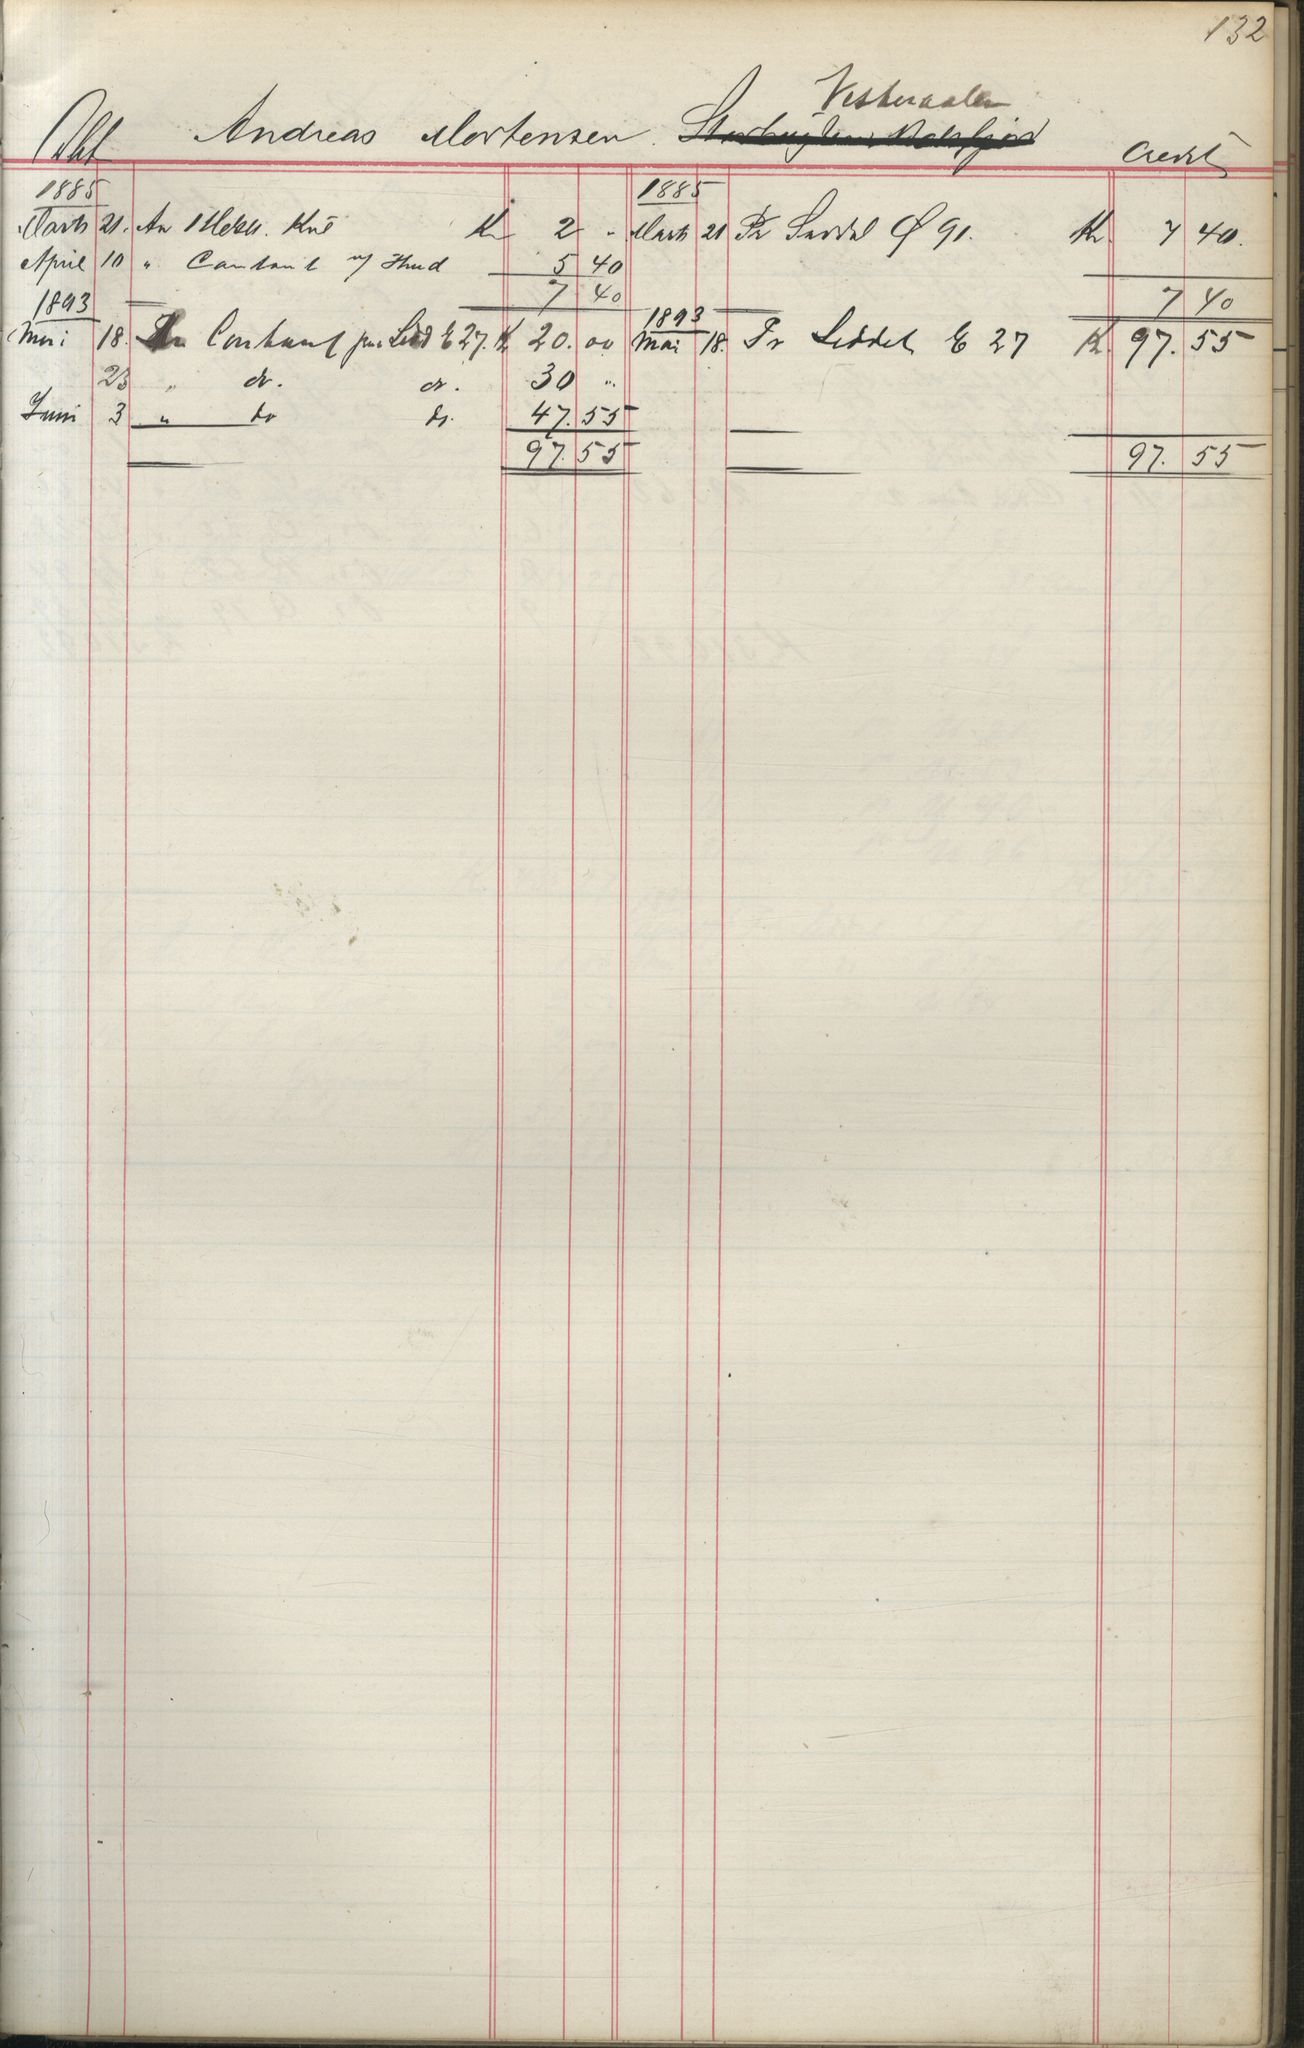 132
Vesteraalen
Debt Andreas Mortensen. Credit
1885 1885
Marts 21. An 1 Hekt. Kul Kr 2 " Marts 21 Pr Seddel Ø 91. Kr. 7 40.
April 10 " Contant 5 40
7 40 7 40
1893 1893
Mai 18. An Contant per Sedd E 27. Kr 20. 00 Mai 18. Pr Seddel E 27 Kr. 97. 55
23 " do. do. 30 "
Juni 3 " do do. 47. 55
97. 55 97. 55